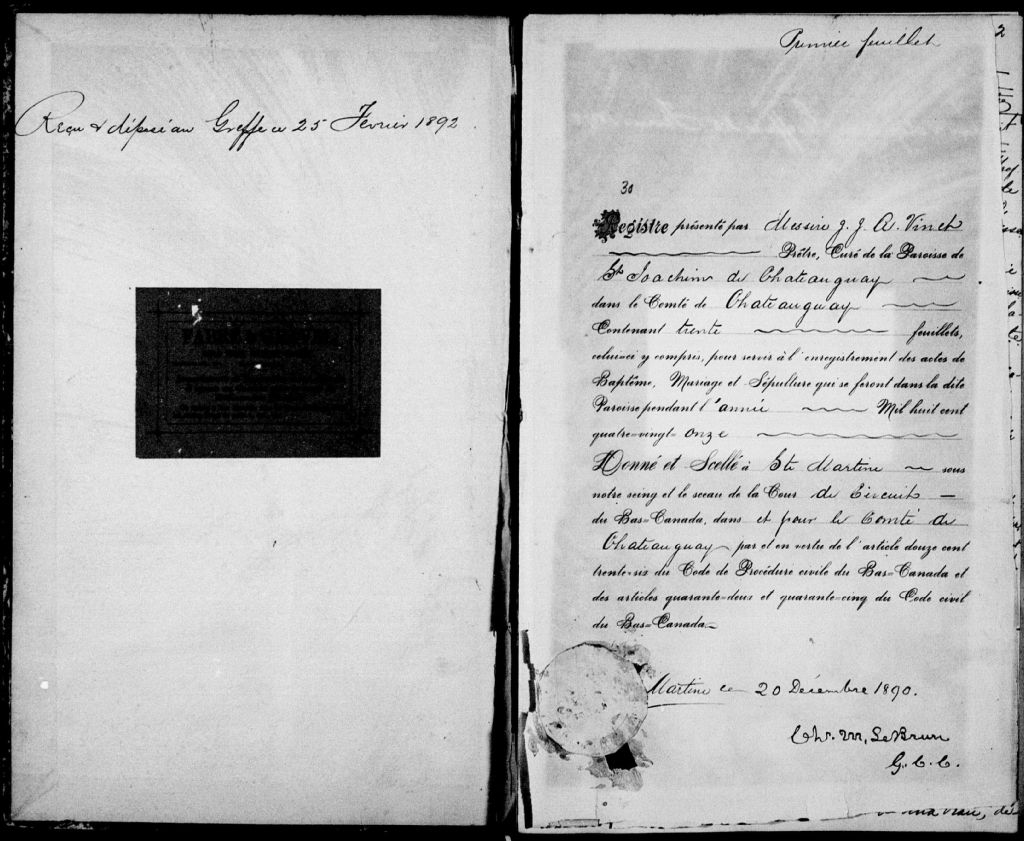 Reçu & déposé au Greffe ce 25 Février 1892
Premier feuillet
2
30
Registre présenté par Messire J. J. A. Vinet
Prêtre, Curé de la Paroisse de
St Joachim de Chateauguay
dans le Comté de Chateauguay
Contenant trente feuillets,
celui-ci y compris, pour servir à l'enregistrement des actes de
Baptême, Mariage et Sépulture qui se feront dans la dite
Paroisse pendant l'année Mil huit cent
quatre-vingt-onze
Donné et Scellé à Ste Martine sous
notre seing et le sceau de la Cour de Circuit
du Bas-Canada, dans et pour le Comté de
Chateauguay par et en vertu de l'article douze cent
trente-six du Code de Procédure civile du Bas-Canada et
des articles quarante-deux et quarante-cinq du Code civil
du Bas-Canada.
Martine ce 20 Décembre 1890.
Chs. M. LeBrun
G. C. C.